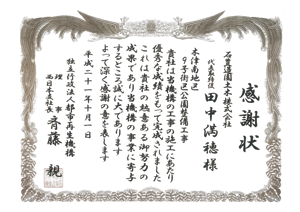 感謝状
石豊造園土木株式会社
代表取締役
田中満穂様
木津南地区
9号街区公園整備工事
貴社は当機構の工事の施工にあたり
優秀な成績をもって完成されました
これは貴社の熱意ある御努力の
成果であり当機構の事業に寄与
するところ誠に大であります
よって深く感謝の意を表します
平成二十一年十月一日
独立行政法人都市再生機構
理事
西日本支社長
斉藤親